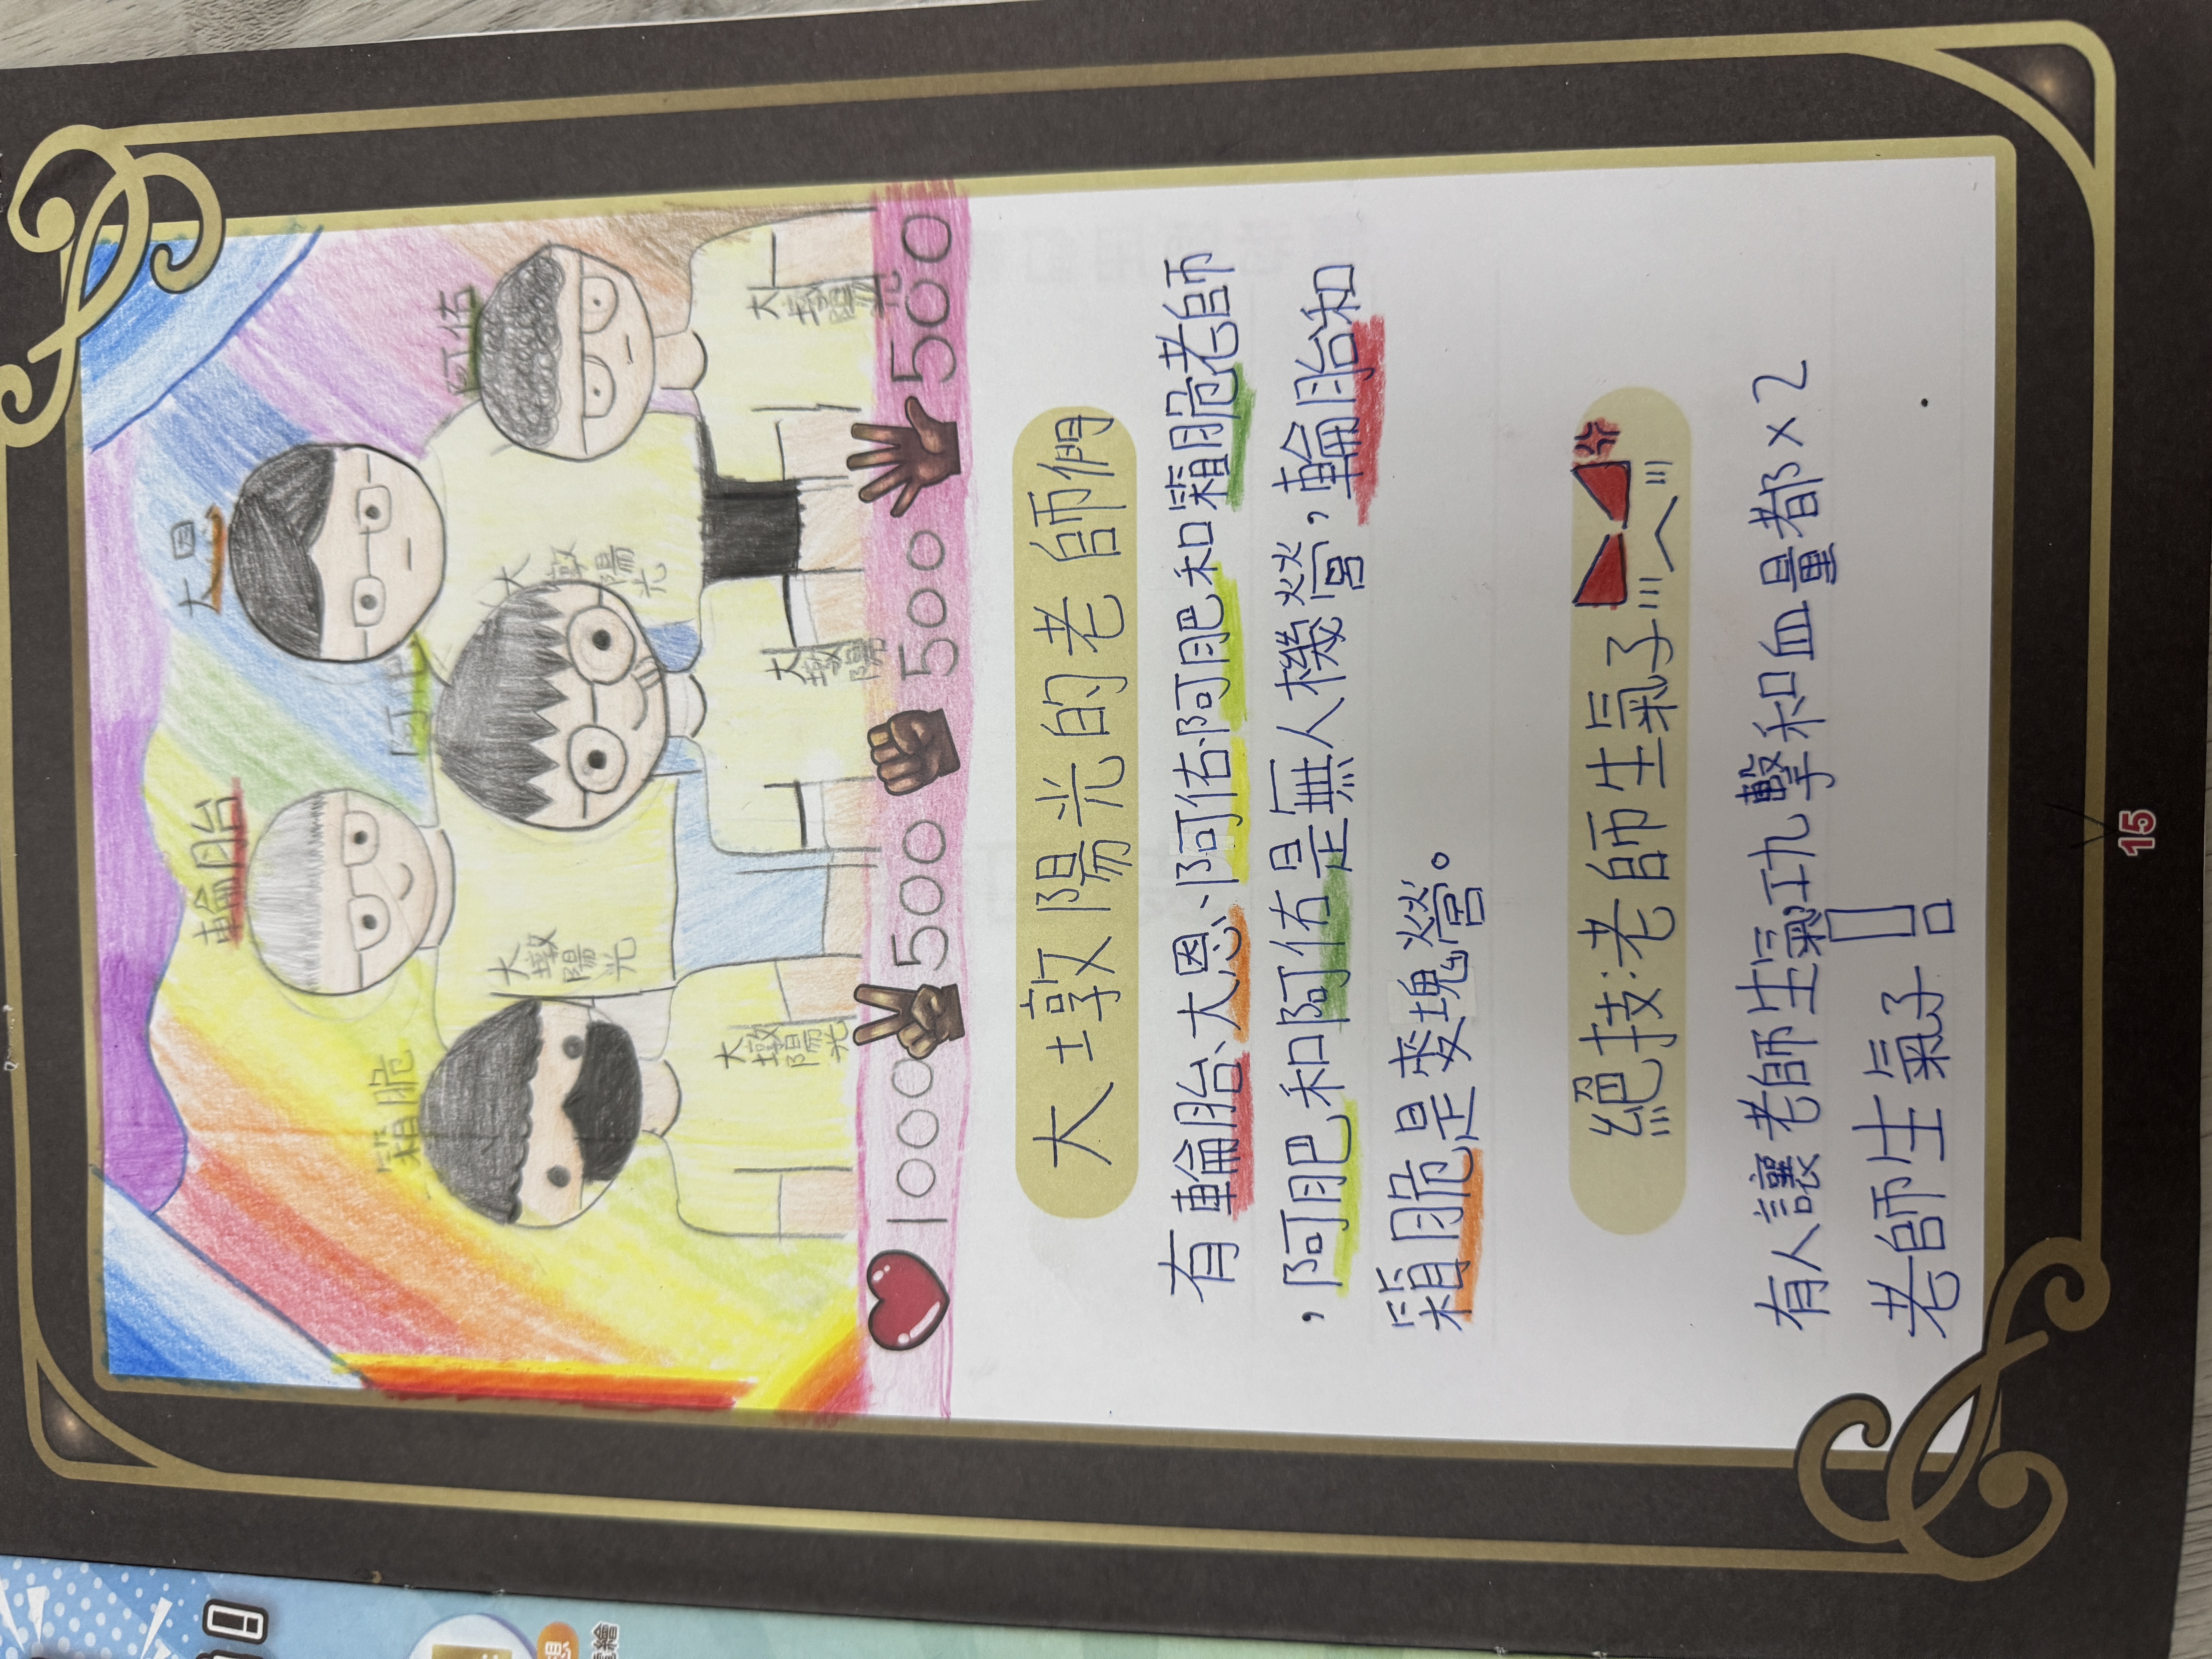 輪胎
大恩
箱脆
阿肥
阿佑
大墩陽光
大墩陽光
大墩陽光
大墩陽
大墩陽光
1000 500 500 500
大墩陽光的老師們
有輪胎、大恩、阿佑、阿肥和霜脆老師
,阿肥和阿佑是無人機營,輪胎和
箱脆是麥塊營。
絕技:老師生氣了
有人讓老師生氣攻擊和血量都×2
老師生氣了!
15